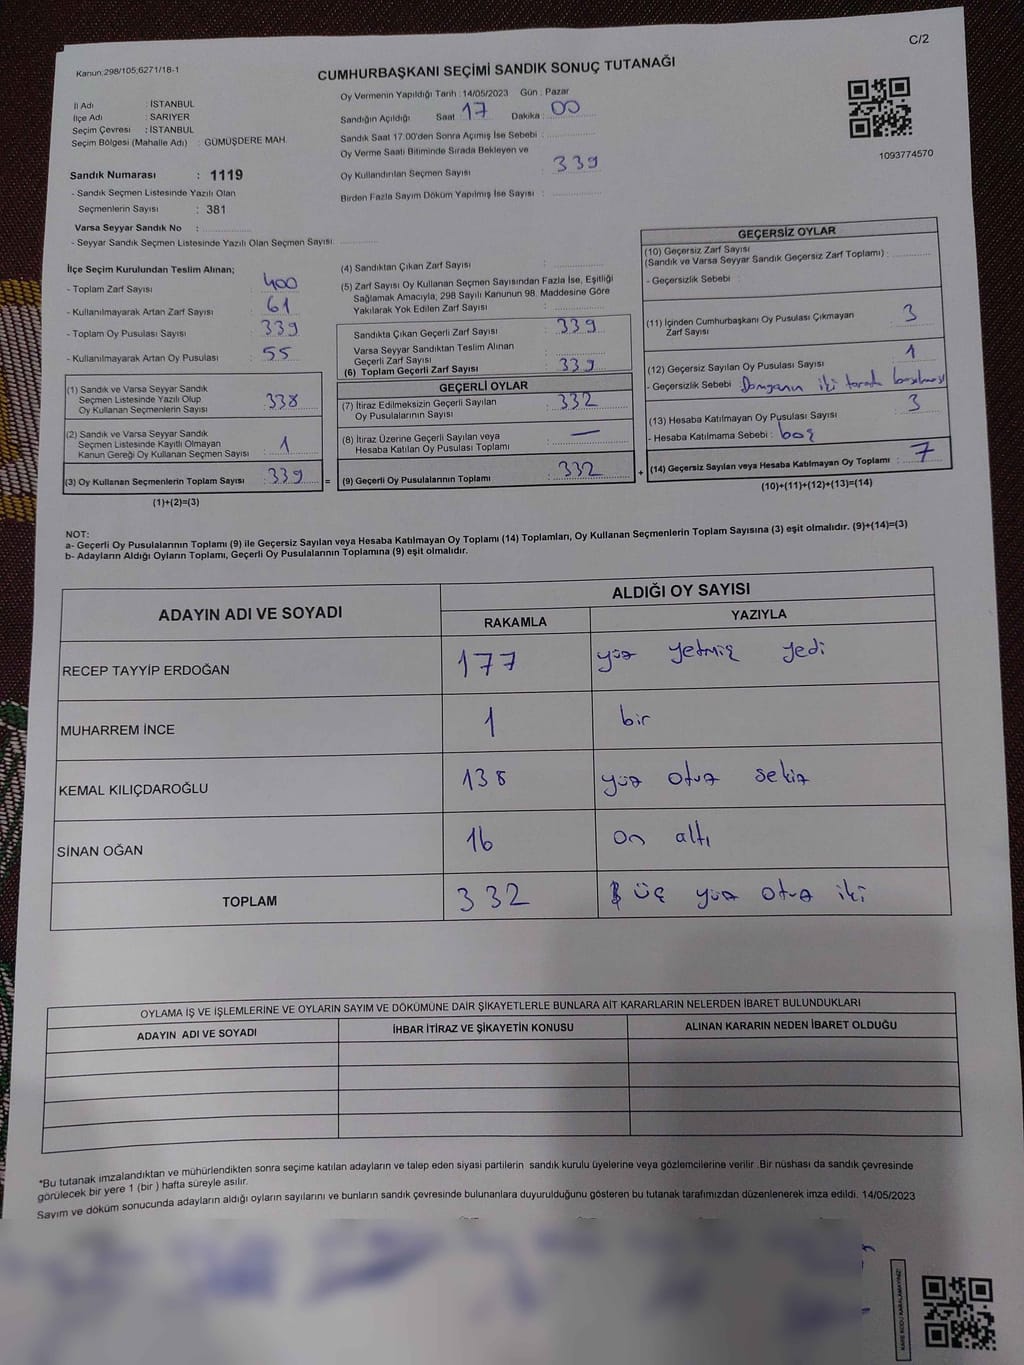 C/2
Kanun;298/105;6271/18-1
CUMHURBAŞKANI SEÇİMİ SANDIK SONUÇ TUTANAĞI
İl Adı : İSTANBUL
İlçe Adı : SARIYER
Seçim Çevresi : İSTANBUL
Seçim Bölgesi (Mahalle Adı) : GÜMÜŞDERE MAH.
Sandık Numarası : 1119
- Sandık Seçmen Listesinde Yazılı Olan
Seçmenlerin Sayısı : 381
Varsa Seyyar Sandık No :
- Seyyar Sandık Seçmen Listesinde Yazılı Olan Seçmen Sayısı
Oy Vermenin Yapıldığı Tarih : 14/05/2023 Gün : Pazar
Sandığın Açıldığı Saat : 17 Dakika : 00
Sandık Saat 17.00'den Sonra Açımış İse Sebebi :
Oy Verme Saati Bitiminde Sırada Bekleyen ve
Oy Kullandırılan Seçmen Sayısı : 339
Birden Fazla Sayım Döküm Yapılmış İse Sayısı :
1093774570
İlçe Seçim Kurulundan Teslim Alınan;
- Toplam Zarf Sayısı : 400
- Kullanılmayarak Artan Zarf Sayısı : 61
- Toplam Oy Pusulası Sayısı : 339
- Kullanılmayarak Artan Oy Pusulası : 55
(1) Sandık ve Varsa Seyyar Sandık
Seçmen Listesinde Yazılı Olup
Oy Kullanan Seçmenlerin Sayısı : 338
(2) Sandık ve Varsa Seyyar Sandık
Seçmen Listesinde Kayıtlı Olmayan
Kanun Gereği Oy Kullanan Seçmen Sayısı : 1
(3) Oy Kullanan Seçmenlerin Toplam Sayısı : 339 =
(1)+(2)=(3)
(4) Sandıktan Çıkan Zarf Sayısı :
(5) Zarf Sayısı Oy Kullanan Seçmen Sayısından Fazla İse, Eşitliği
Sağlamak Amacıyla, 298 Sayılı Kanunun 98. Maddesine Göre
Yakılarak Yok Edilen Zarf Sayısı :
Sandıkta Çıkan Geçerli Zarf Sayısı : 339
Varsa Seyyar Sandıktan Teslim Alınan
Geçerli Zarf Sayısı :
(6) Toplam Geçerli Zarf Sayısı : 339
GEÇERLİ OYLAR
(7) İtiraz Edilmeksizin Geçerli Sayılan
Oy Pusulalarının Sayısı : 332
(8) İtiraz Üzerine Geçerli Sayılan veya
Hesaba Katılan Oy Pusulası Toplamı : —
(9) Geçerli Oy Pusulalarının Toplamı : 332 +
GEÇERSİZ OYLAR
(10) Geçersiz Zarf Sayısı
(Sandık ve Varsa Seyyar Sandık Geçersiz Zarf Toplamı) :
- Geçersizlik Sebebi :
(11) İçinden Cumhurbaşkanı Oy Pusulası Çıkmayan
Zarf Sayısı : 3
(12) Geçersiz Sayılan Oy Pusulası Sayısı : 1
- Geçersizlik Sebebi : Damganın iki tarafa basılması
(13) Hesaba Katılmayan Oy Pusulası Sayısı : 3
- Hesaba Katılmama Sebebi : boş
(14) Geçersiz Sayılan veya Hesaba Katılmayan Oy Toplamı : 7
(10)+(11)+(12)+(13)=(14)
NOT:
a- Geçerli Oy Pusulalarının Toplamı (9) ile Geçersiz Sayılan veya Hesaba Katılmayan Oy Toplamı (14) Toplamları, Oy Kullanan Seçmenlerin Toplam Sayısına (3) eşit olmalıdır. (9)+(14)=(3)
b- Adayların Aldığı Oyların Toplamı, Geçerli Oy Pusulalarının Toplamına (9) eşit olmalıdır.
ADAYIN ADI VE SOYADI
ALDIĞI OY SAYISI
RAKAMLA YAZIYLA
RECEP TAYYİP ERDOĞAN 177 yüz yetmiş yedi
MUHARREM İNCE 1 bir
KEMAL KILIÇDAROĞLU 138 yüz otuz sekiz
SİNAN OĞAN 16 on altı
TOPLAM 332 üç yüz otuz iki
OYLAMA İŞ VE İŞLEMLERİNE VE OYLARIN SAYIM VE DÖKÜMÜNE DAİR ŞİKAYETLERLE BUNLARA AİT KARARLARIN NELERDEN İBARET BULUNDUKLARI
ADAYIN ADI VE SOYADI İHBAR İTİRAZ VE ŞİKAYETİN KONUSU ALINAN KARARIN NEDEN İBARET OLDUĞU
*Bu tutanak imzalandıktan ve mühürlendikten sonra seçime katılan adayların ve talep eden siyasi partilerin sandık kurulu üyelerine veya gözlemcilerine verilir .Bir nüshası da sandık çevresinde
görülecek bir yere 1 (bir ) hafta süreyle asılır.
Sayım ve döküm sonucunda adayların aldığı oyların sayılarını ve bunların sandık çevresinde bulunanlara duyurulduğunu gösteren bu tutanak tarafımızdan düzenlenerek imza edildi. 14/05/2023
KARE KODU KARALAMAYINIZ!